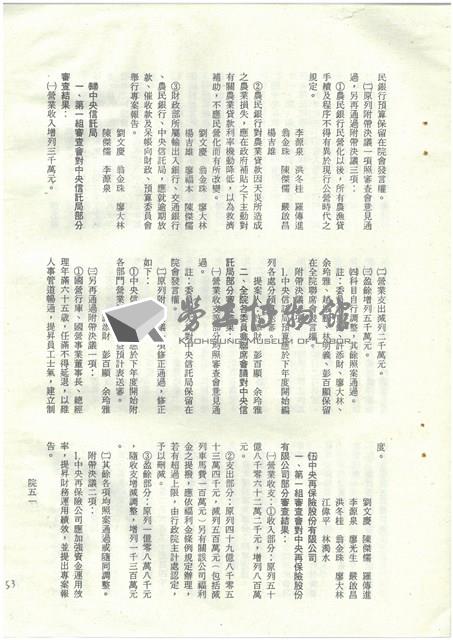 民銀行預算保留在院會發言權。
㈡原列附帶決議一項照審查會意見通
過，另再通過附帶決議三項：
①農民銀行民營化以後，所有農漁貸
手續及程序不得有異於現行公營時之
規定。
李源泉　洪冬桂　羅傳進
翁金珠　陳傑儒　嚴啟昌
楊吉雄
②農民銀行對農業貸款因天災所造成
之農業損失，應在政府補貼之下主動對
有關農業貸款利率機動降低，以為救濟
補助，不應民營化而有所改變。
楊吉雄　廖福本　陳傑儒
劉文慶　翁金珠　廖大林
③財政部所屬輸出入銀行、交通銀行
、農民銀行、中央信託局，應就逾期放
款、催收款及呆帳向財政、預算委員會
舉行專案報告。
劉文慶　翁金珠　廖大林
陳傑儒　李源泉
中央信託局
一、第一組審查會對中央信託局部分
審查結果：
㈠營業收入增列三千萬元。
㈡營業支出減列二千萬元。
㈢盈餘增列五千萬元。
㈣科目自行調整，其餘照案通過。
註：委員　添財、廖大林、
余玲雅、　明義、彭百顯保留
在全院聯席　發言權。
附帶決議
1.中央信託局預算應於下年度開始編
列各處分預算
提案人　彭百顯　余玲雅
二、全院各委員會聯席會議對中央信
託局部分審查結果
㈠營業收支部分均照審查會意見通
過。
註：委　中央信託局保留在
院會發言權
㈡原列附　項修正通過，修正
如下：
①中央信託局　應於下年度開始附
各部門營業　預計表送審。
添財　彭百顯　余玲雅
㈢另再通過附帶決議一項：
①國營行庫、國營事業董事長、總經
理年滿六十五歲，任滿不得延退，以維
人事管道暢通，提昇員工士氣，建立制
度。
劉文慶　陳傑儒　羅傳進
翁金珠　廖光生　嚴啟昌
洪冬桂　翁金珠　廖大林
江偉平　林濁水
中央再保險股份有限公司
一、第一組審查會對中央再保險股份
有限公司部分審查結果：
㈠營業收支：①收入部分：原列五十
億八千零六十二萬二千元，增列八百萬
元。
②支出部分：原列四十九億八千零五
十三萬四千元，減列五百萬元（包括減
列車馬費一百萬元）另有關該公司福利
金之提撥，應依福利金條例規定辦理，
若有超過上限，由行政院主計處認定，
予以刪減。
③盈餘部分：原列一億零八萬八千元
，隨收支增減調整，增列一千三百萬
元。
㈡其餘各項均照案通過或隨同調整。
附帶決議二項：
1.中央再保險公司應加強資金運用效
率，提昇財務運用績效，並提出專案報
告。
院五一
53
勞工博物館
KAOHSIUNG MUSEUM OF LABOR